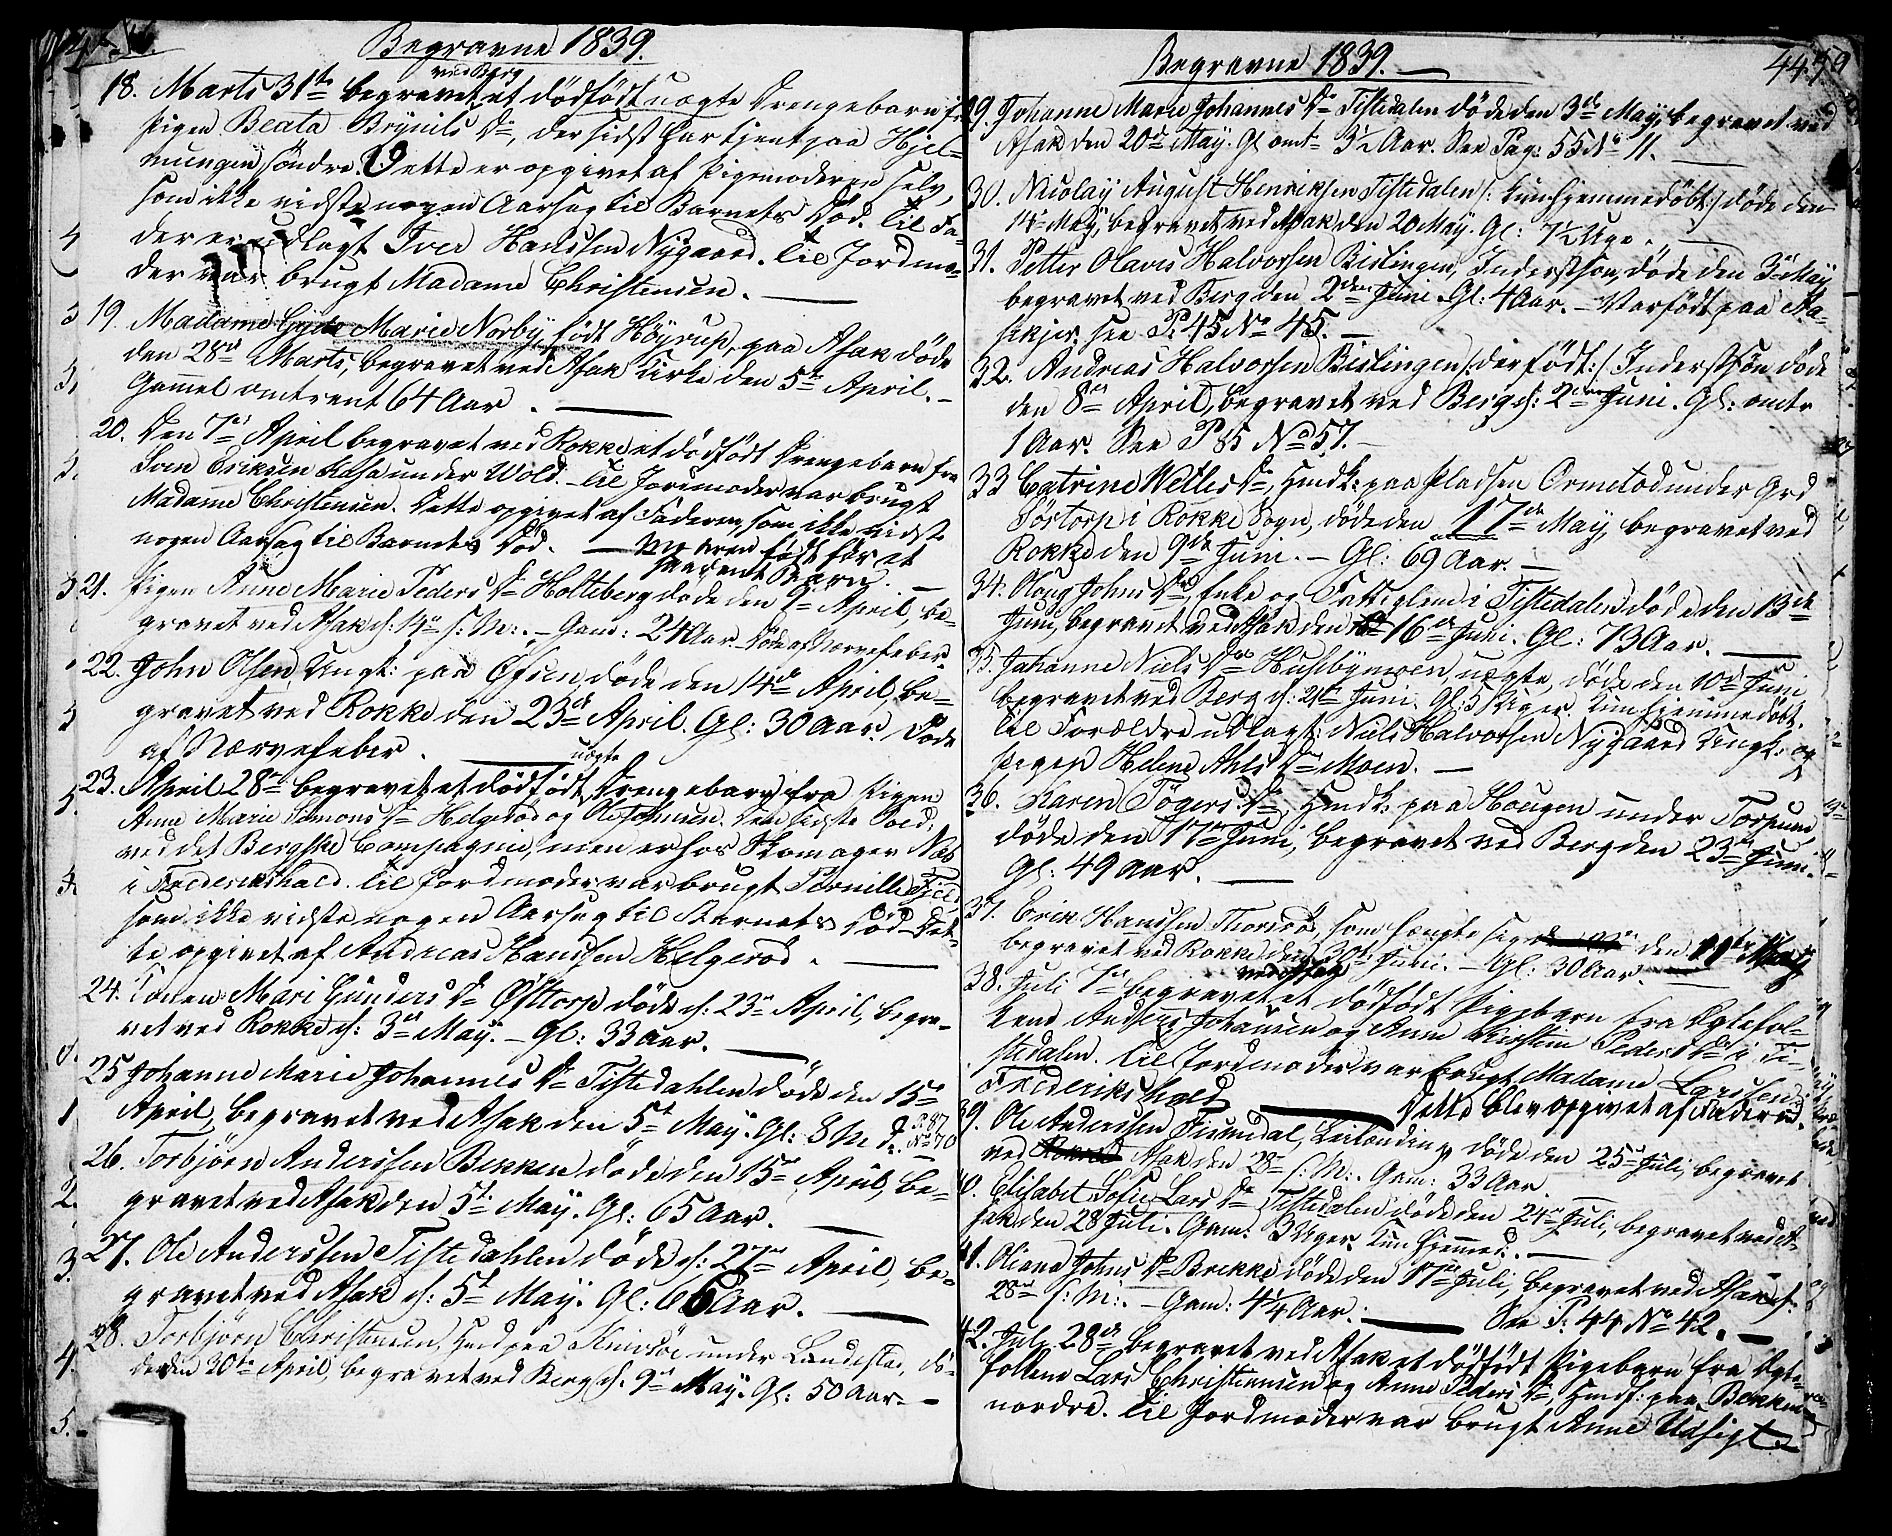 Begravne 1839.
ved Berg
18. Marts 31te begravet et dödfödt uægte Drengebarn fr.
Pigen Beata Brynils Dr, der sidst har tjent paa Hjel-
mungen söndre. Dette er opgivet af Pigemoderen selv,
som ikke vidste nogen Aarsag til Barnets Död. Til Fa-
der er udlagt Iver Hanssen Nygaard. Til Jordmo-
der var brugt Madame Christensen.
19. Madame Gjda Marie Norby, födt Höyrup, paa Asak döde
den 28de Marts, begravet ved Asak Kirke den 5te April.-
Gammel omtrent 64 Aar.
20. Den 7de April begravet ved Rokke et dödfödt Drengebarn fra
Sven Eriksen Aasa under Wold. - Til Jordmoder var brugt
Madame Christensen. Dette opgivet af Faderen, som ikke vidste
nogen Aarsag til Barnets Död. - Moderen födt för et
saadant Barn.
21. Pigen Anne Marie Peders Dr Holteberg döde den 9de April, be-
gravet ved Asak d: 14de s: M:. - Gam: 24 Aar. Döde af Nervefeber.
22. John Olsen, Ungk: paa Öfsen, döde den 14de April, be-
gravet ved Rokke den 23de April. Gl: 30 Aar. Döde
af Nærvefeber.
uægte
23. April 28de begravet et dödfödt Drengebarn fra Pigen
Anne Marie Simons Dr Helgeröd og Ole Johnsen. Den sidste Sold:
ved det Bergske Compagnie, men er hos Skomager Næs
i Frederikshald. Til Jordmoder var brugt Pernille Fjeld,
som ikke vidste nogen Aarsag til Barnets Död. Det-
te opgivet af Andreas Hanssen Helgeröd.
24. Conen Mari Gunders Dr Östtorp döde d: 23de April, begra-
vet ved Rokke d: 3de May. - Gl: 33 Aar.
25 Johanne Marie Johannes Dr Tistedahlen döde den 15de
April, begravet ved Asak den 5te May. Gl: 8 M. P. 87 No 70
26. Torbjörn Anderssen Bekken döde den 15de April, be-
gravet ved Asak den 5te May. Gl: 65 Aar.
27. Ole Anderssen Tistedahlen döde d: 27de April, be-
gravet ved Asak d: 5te May. Gl: 66 Aar.
28. Torbjörn Christensen, Hmd paa Knivsöe under Landestad, dö-
de den 30te April, begravet ved Berg d. 9de May. Gl: 50 Aar. -
Begravne 1839. -
29. Johanne Marie Johannes Dr Tistedalen döde den 3de May, begravet ved
Asak den 20de May. Gl omtr 3½ Aar. See Pag. 55 No 11.
30. Nicolay August Henriksen Tistedalen /: kun hjemmedöbt :/ döde den
14de May, begravet ved Asak den 20 May. Gl: 7½ Uge.
31. Petter Olaves Halvorsen Bislingen, Inderstsön, döde den 3de May,
begravet ved Berg den 2den Juni. Gl: 4 Aar. - Var födt paa Na-
skjer, see P. 45 No 45. -
32. Andreas Halvorsen Bislingen /: der födt :/ Inderstsön döde
den 8de April, begravet ved Berg d: 2den Juni. Gl: omtr
1 Aar. See P 85 No 57. -
33 Catrine Welles Dr, Hmdk: paa Pladsen Ormetod under Grd
Törtorp i Rokke Sogn, döde den 17de May, begravet ved
Rokke den 9de Juni. - Gl: 69 Aar. -
34. Johns Dr, Enke og Fattiglem i Tistedalen döde den 13de
Juni, begravet ved Asak den 16de Juni. Gl: 73 Aar.
35. Johanne Niels Dr Husebymoen, uægte, döde den 10de Juni,
begravet ved Berg d: 21de Juni. Gl: 5 Uger. Kun hjemmedöbt.
Til Forældre udlagt: Niels Halvorsen Nygaard Ungk: og
Pigen Helene Ahls Dr Moen. -
36. Karen Tögers Dr, Hmdk: paa Hougen under Torpum,
döde den 17de Juni, begravet ved Berg den 23de Juni.
Gl: 49 Aar.
37. Erik Hanssen Thoreröd, som hængte sig den 11te May
begravet ved Rokke den 30te Juni. - Gl: 30 Aar.
ved Asak
38. Juli 7de begravet et dödfödt Pigebarn fra Ægtefol-
kene Anders Johansen og Anne Kirstine Peders Dr i Ti-
stedalen. Til Jordmoder var brugt Madame Larssen,
Frederikshald. Dette blev opgivet af Faderen.
39. Ole Anderssen Firendal, Leilænding, döde den 25de Juli, begravet
ved Asak den 28de s: M:. Gam: 33 Aar.
40. Elisabet Sofie Lars Dr Tistedalen döde den 24de Juli, begravet ved A-
sak den 28 Juli. Gam: 3 Uger. Kun hjemmed:. -
41. Oliana Johns Dr Brekke döde den 17de Juli, begravet ved Asak d.
28de s: M:. - Gam: 4¼ Aar. See P. 44 No 42. -
42. Juli 28de begravet ved Asak et dödfödt Pigebarn fra Ægte-
folkene Lars Christensen og Anne Peders Dr, Hmdf: paa Bekken
nordre. Til Jordmoder var brugt Anne Udsigt.